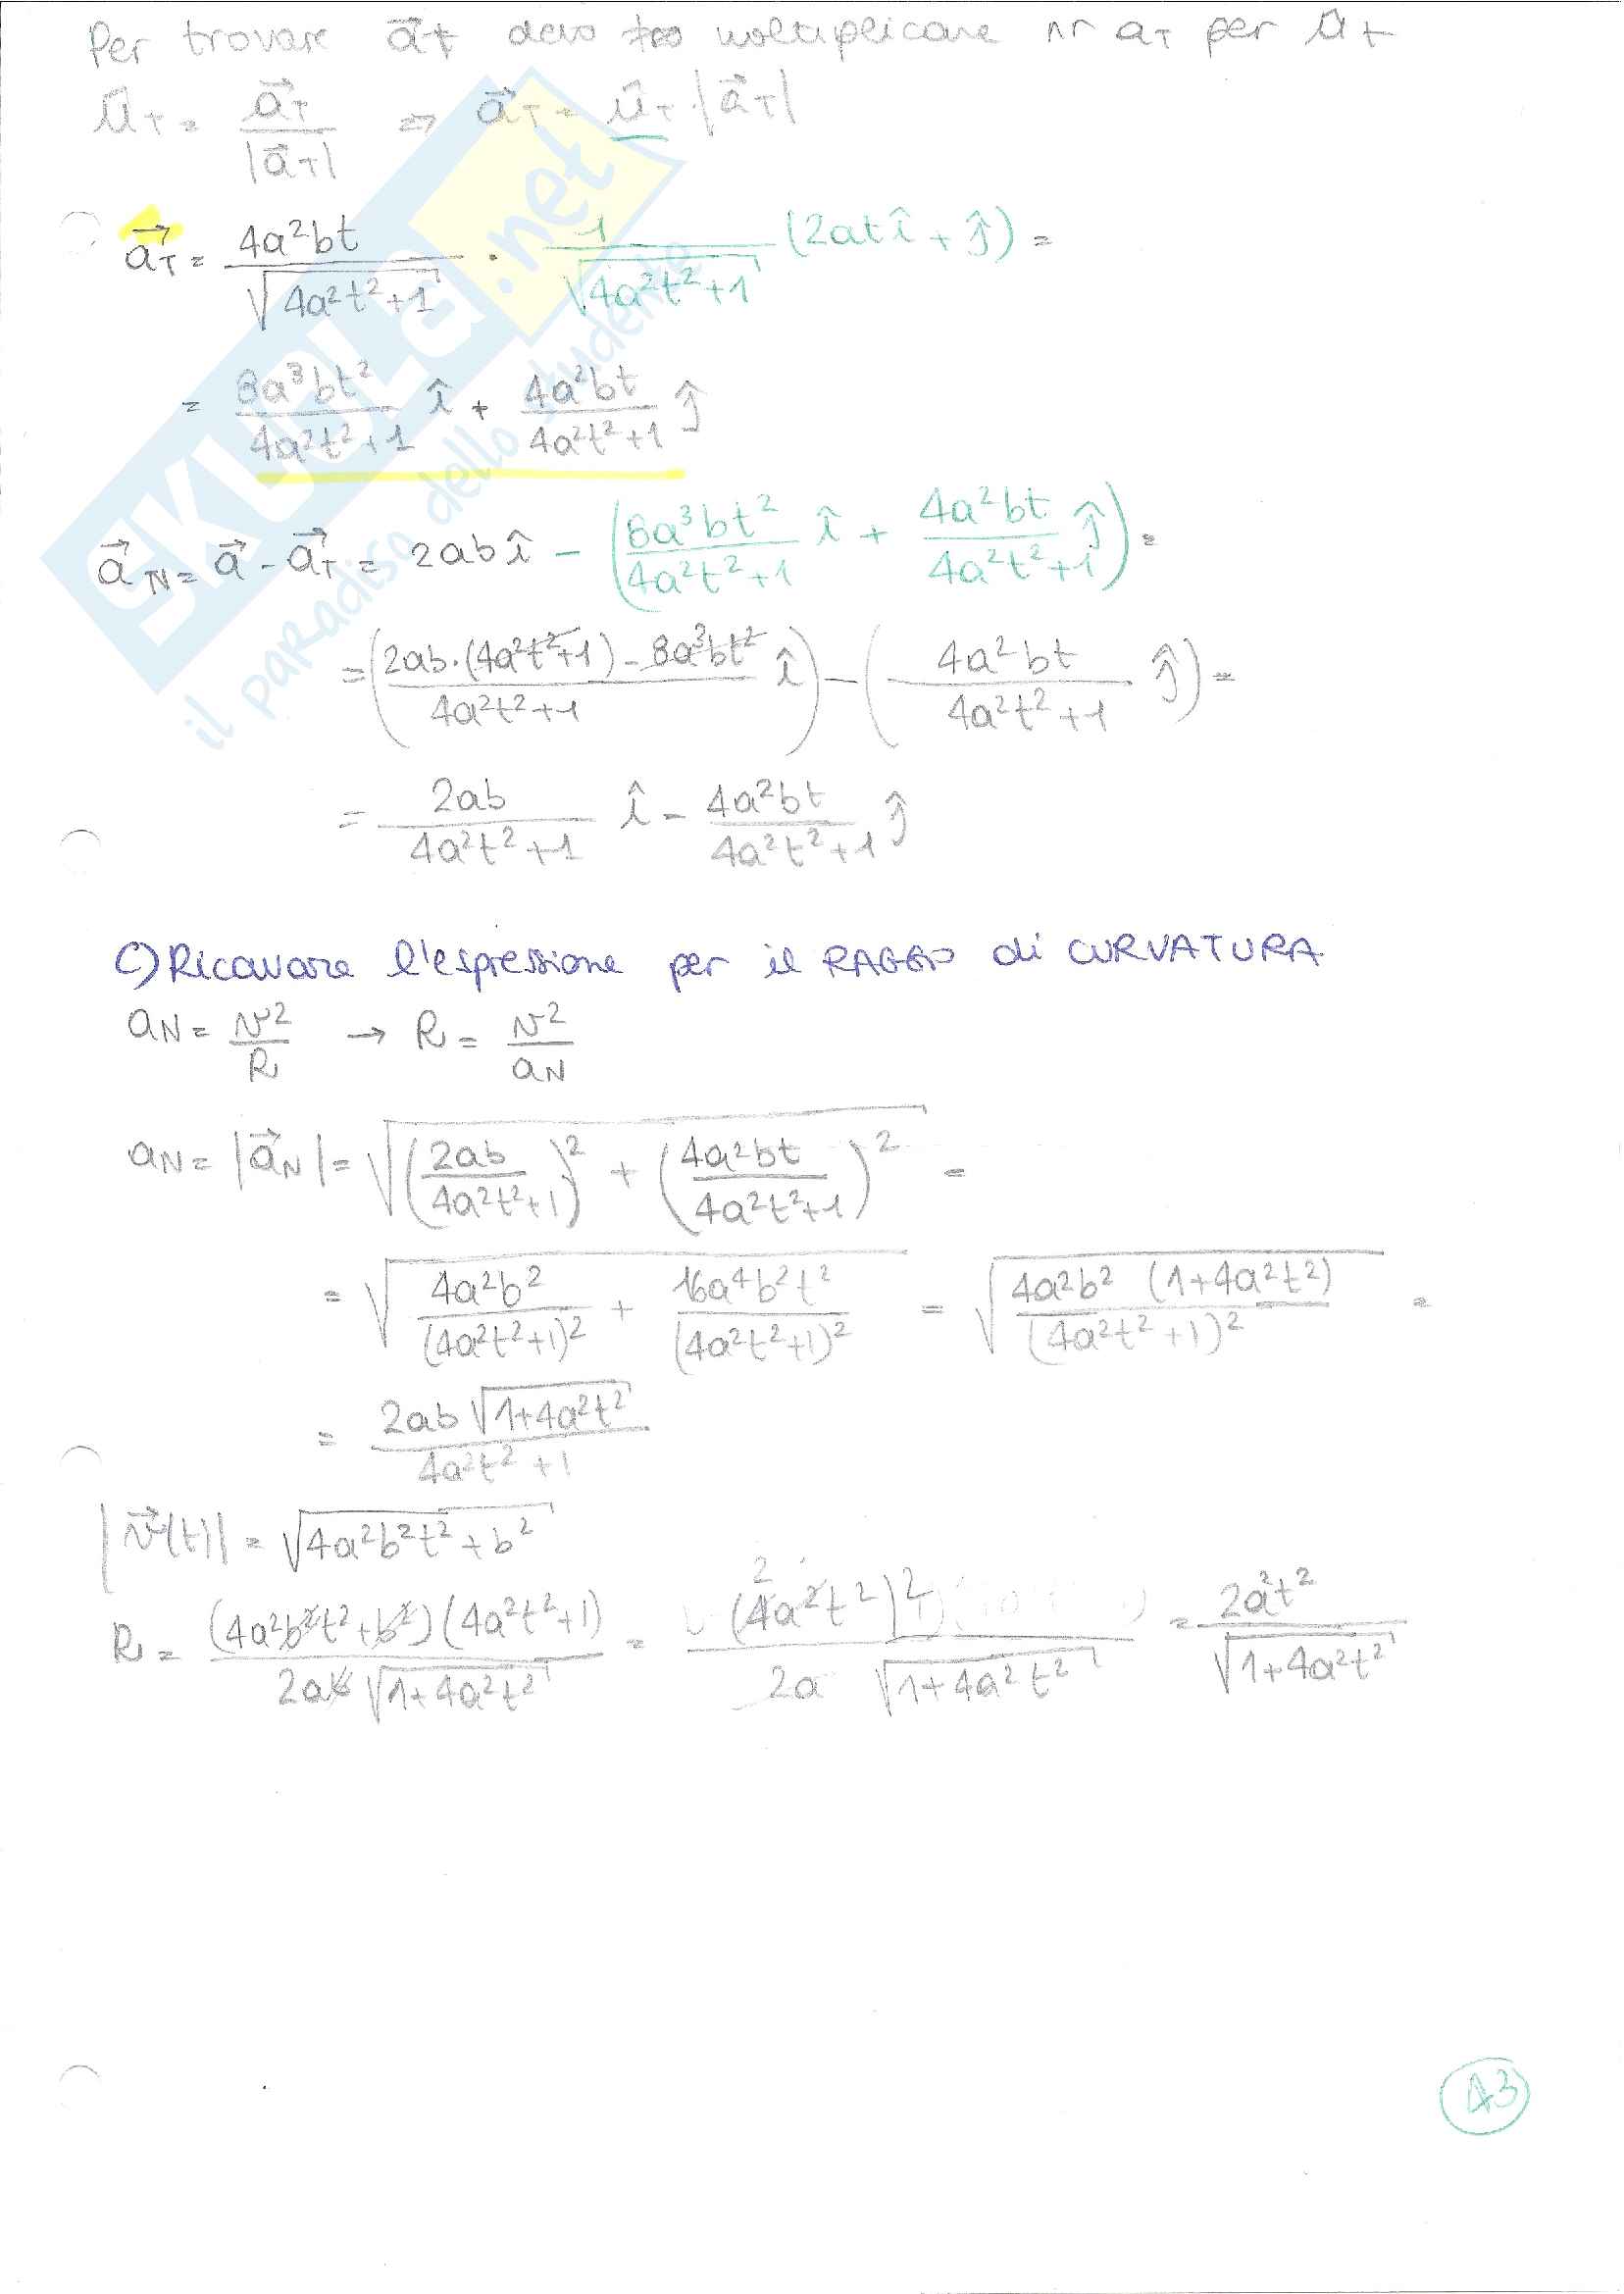 Per trovare a⃗t devo moltiplicare nr aT per ût
ûT = a⃗T / |a⃗T| ⇒ a⃗T = ûT |a⃗T|
a⃗T = 4a²bt / √(4a²t²+1) · 1 / √(4a²t²+1) (2at î + ĵ) =
= 8a³bt² / (4a²t²+1) î + 4a²bt / (4a²t²+1) ĵ
a⃗N = a⃗ - a⃗T = 2ab î - (8a³bt² / (4a²t²+1) î + 4a²bt / (4a²t²+1) ĵ) =
= (2ab·(4a²t²+1) - 8a³bt² / (4a²t²+1) î) - (4a²bt / (4a²t²+1) ĵ) =
= 2ab / (4a²t²+1) î - 4a²bt / (4a²t²+1) ĵ
C) Ricavare l'espressione per il RAGGIO di CURVATURA
aN = v² / R → R = v² / aN
aN = |a⃗N| = √((2ab / (4a²t²+1))² + (4a²bt / (4a²t²+1))²) =
= √(4a²b² / (4a²t²+1)² + 16a⁴b²t² / (4a²t²+1)²) = √(4a²b² (1+4a²t²) / (4a²t²+1)²) =
= 2ab √(1+4a²t²) / (4a²t²+1)
|v⃗(t)| = √(4a²b²t² + b²)
R = (4a²b²t²+b²)(4a²t²+1) / 2ab √(1+4a²t²) = (4a²t²)² / 2a √(1+4a²t²) = 2a²t² / √(1+4a²t²)
43
SKUOLA.net
il paradiso dello studente